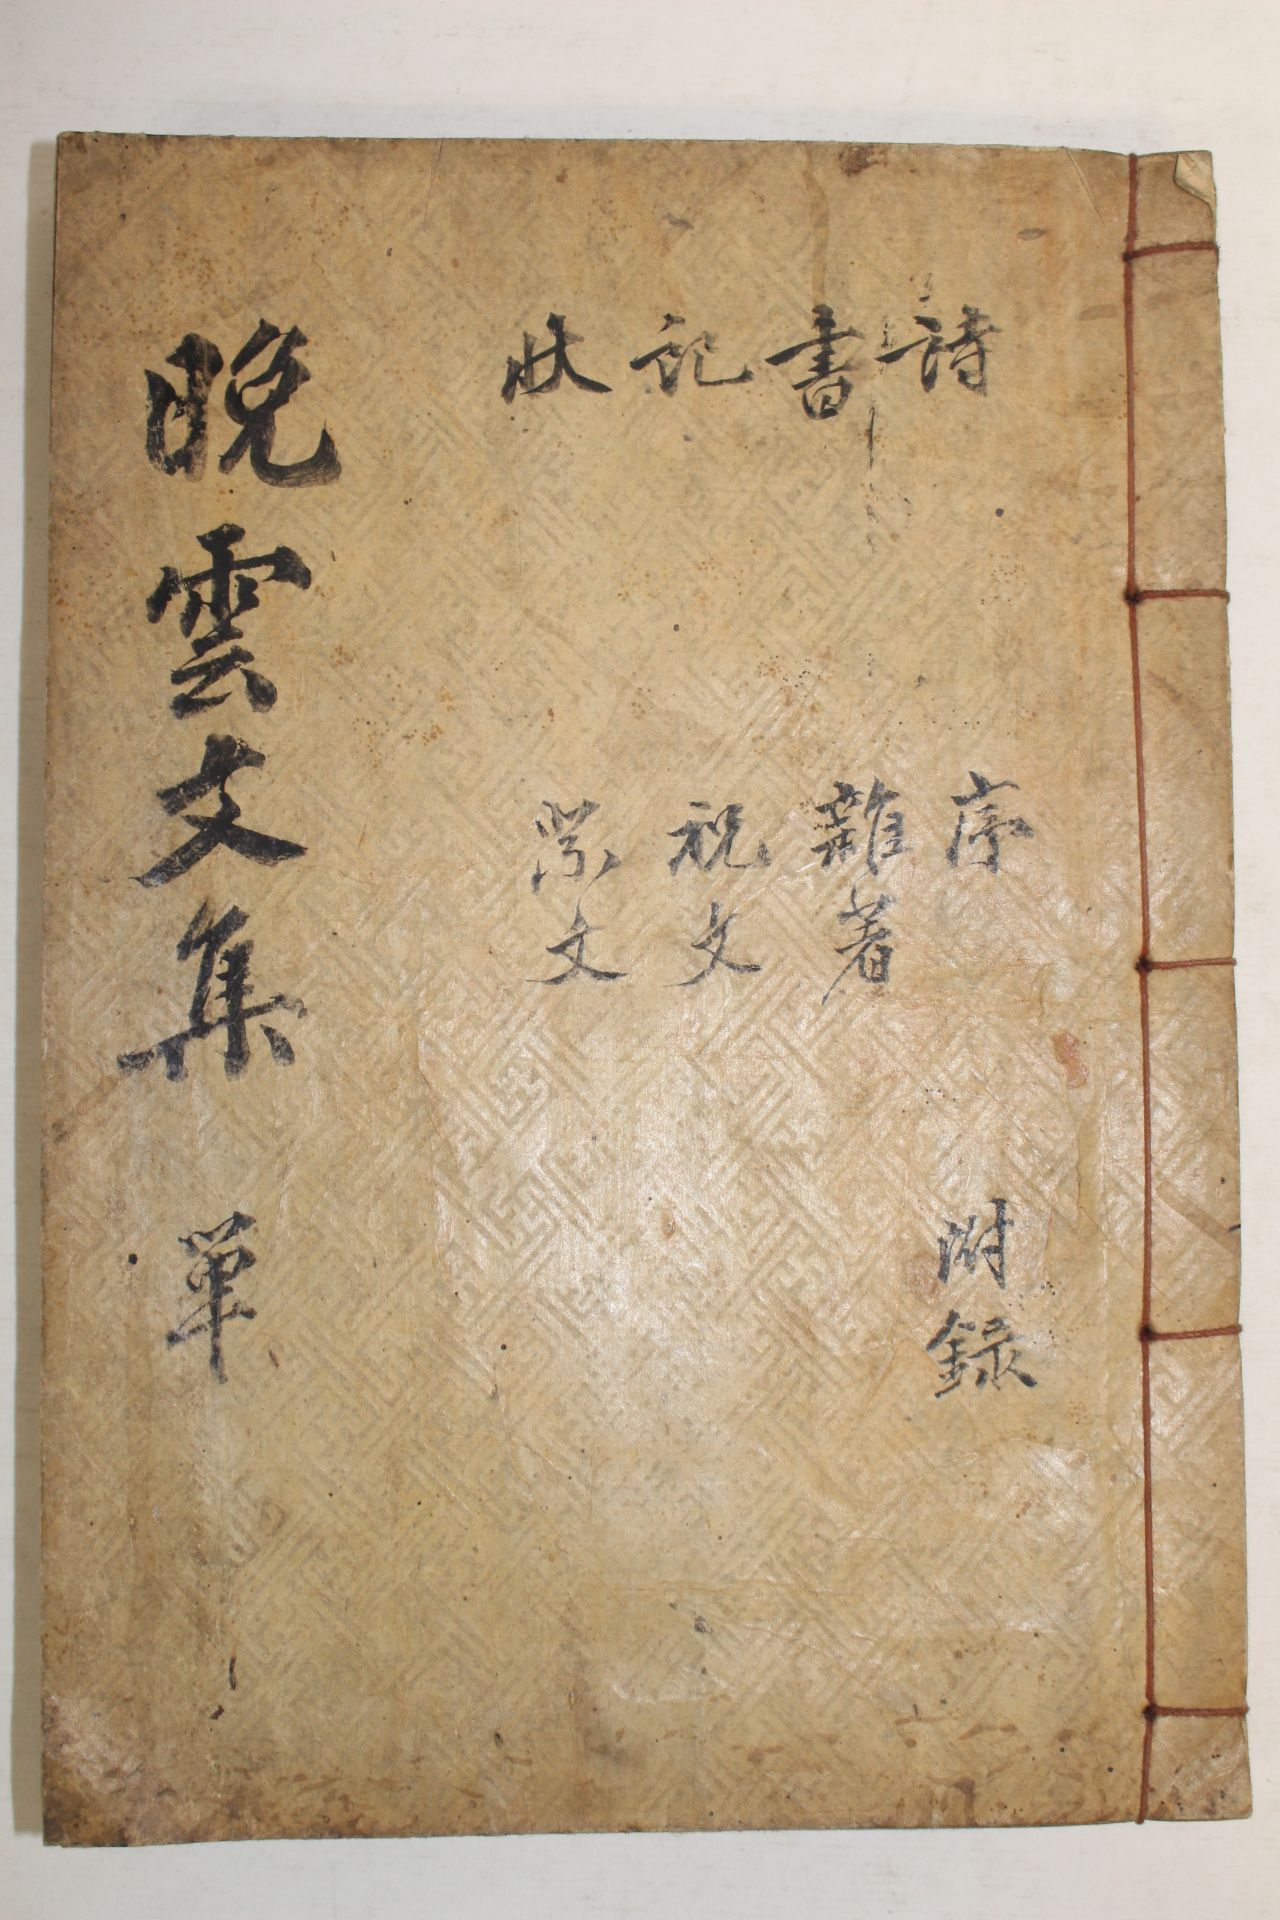 詩
書
記
狀
序
雜著
祝文
祭文
附錄
晩雲文集 單